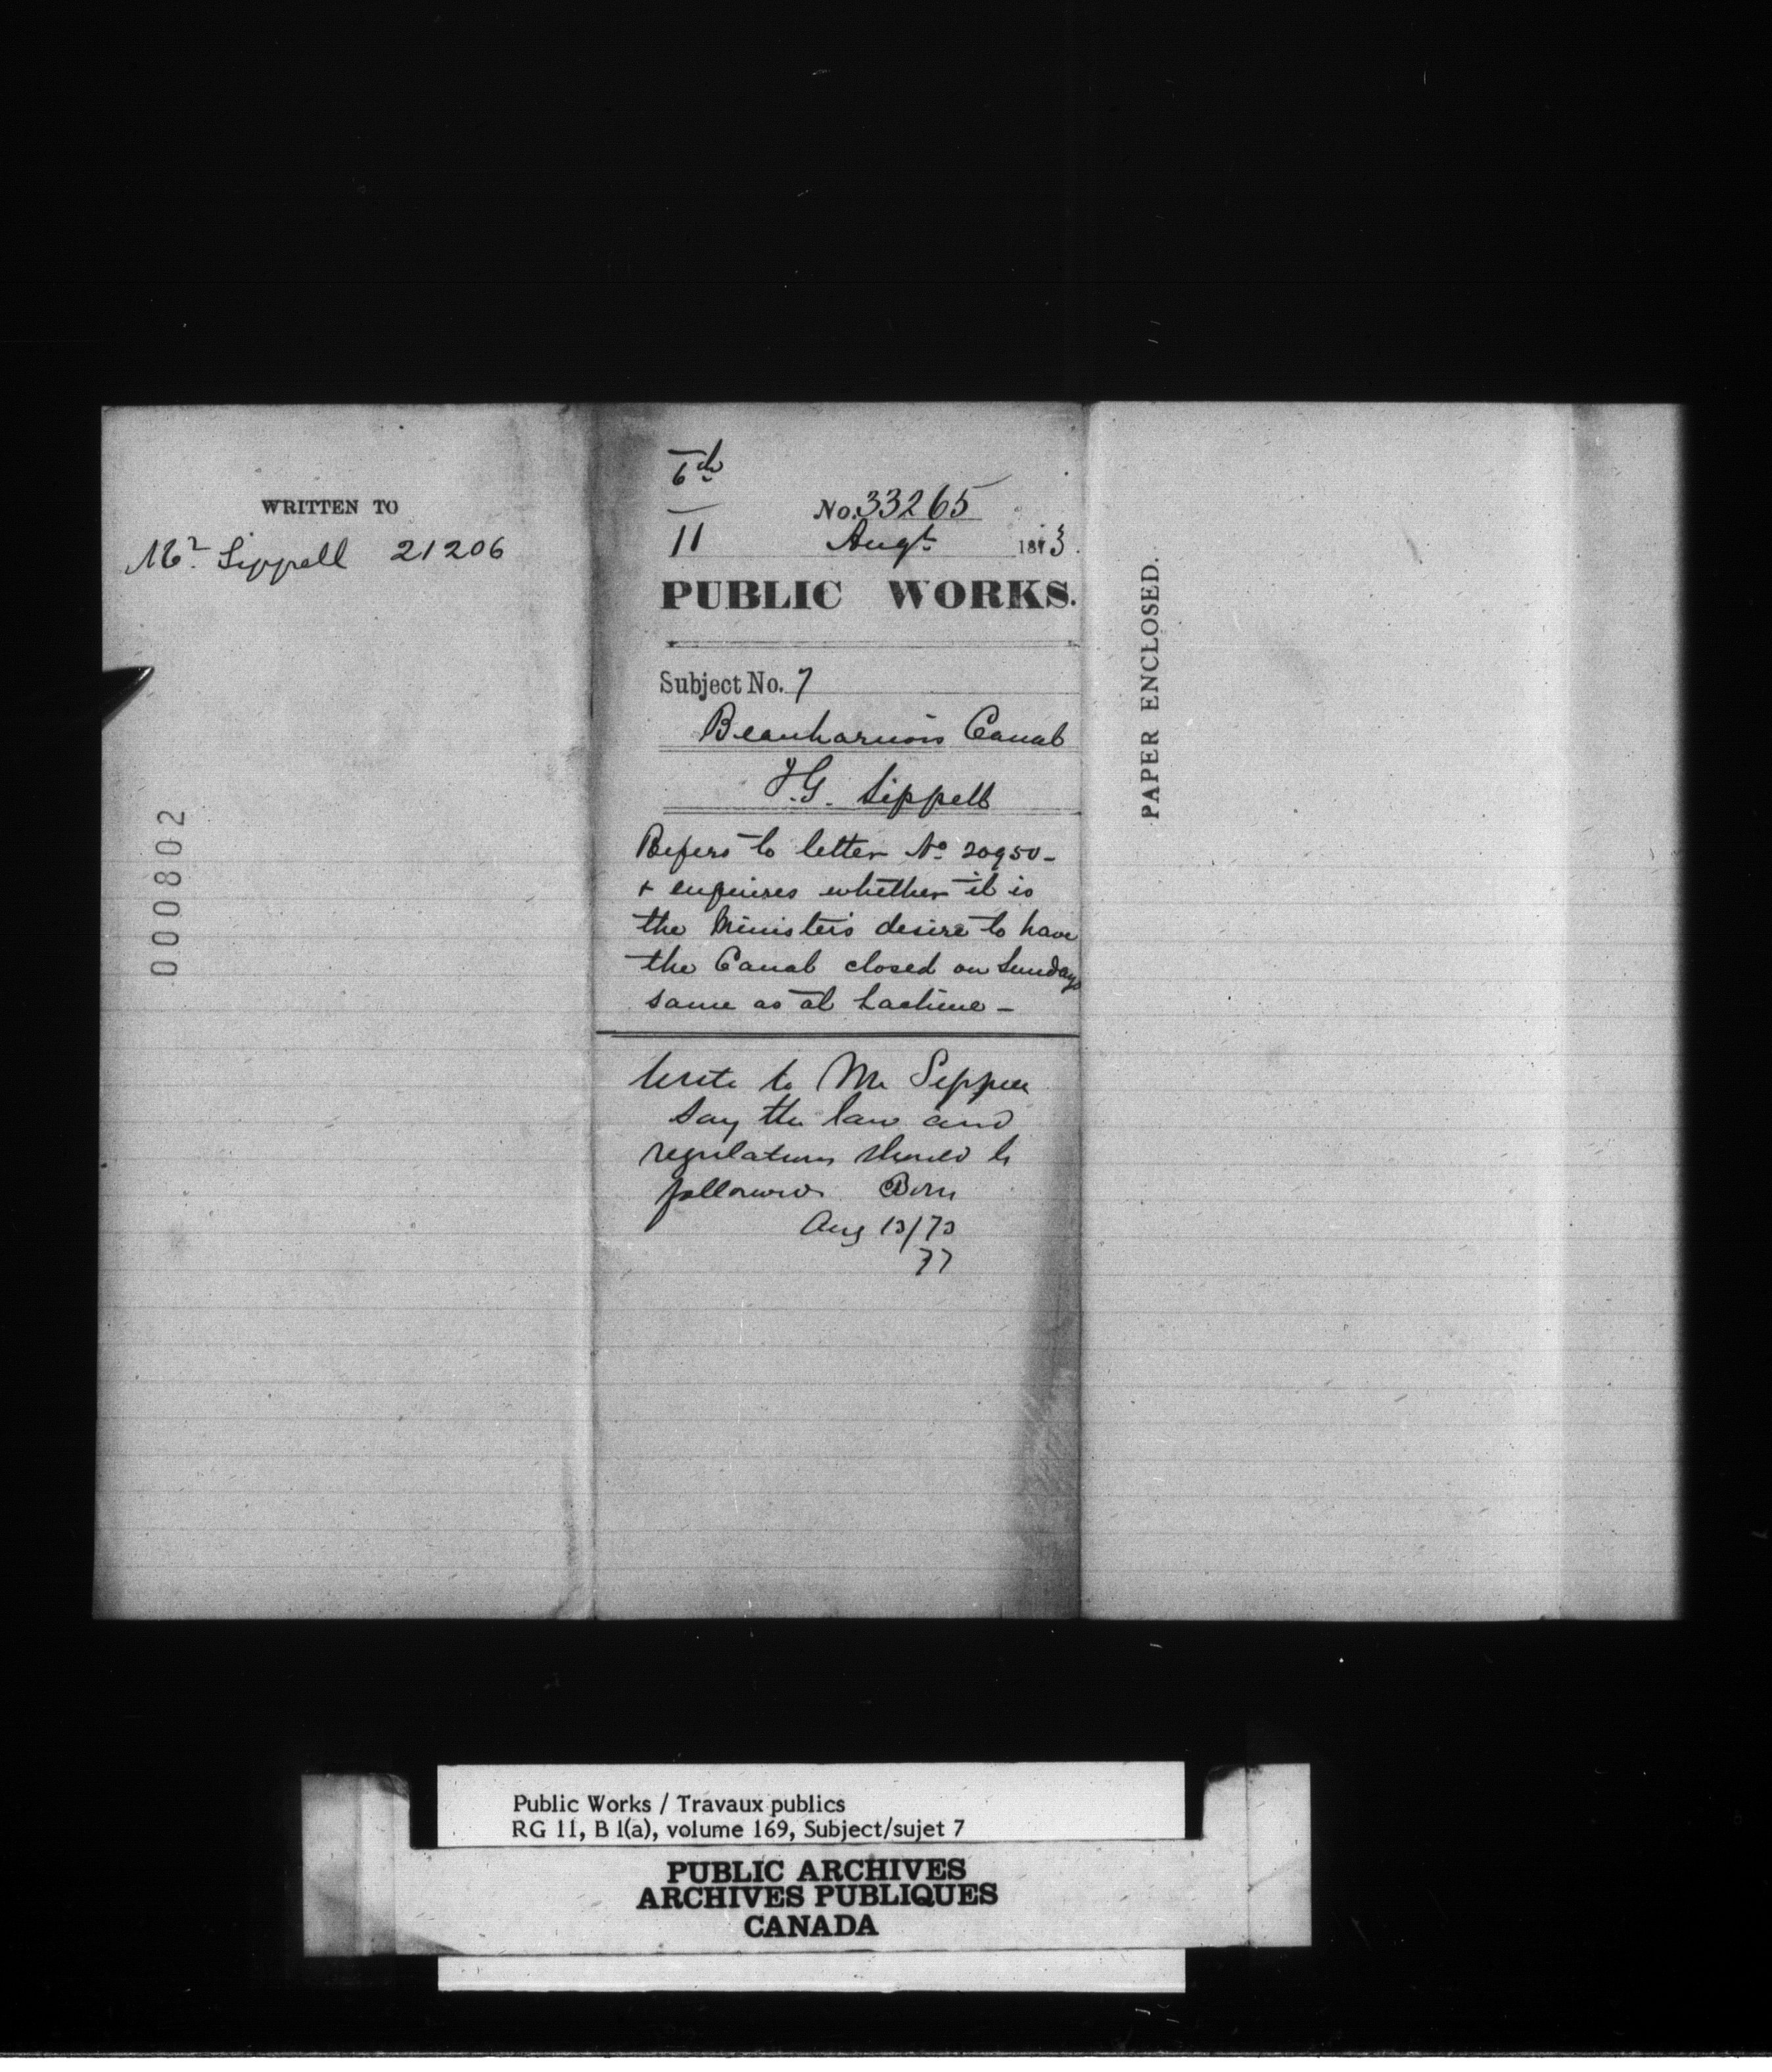 WRITTEN TO
Mr. Sippell 21206
000802
6th
11
No. 33265
Augt. 1873.
PUBLIC WORKS.
Subject No. 7
Beauharnois Canal
F.G. Sippell
Refers to letter No. 20950 -
& enquires whether it is
the Minister's desire to have
the Canal closed on Sundays
same as at Lachine -
Write to Mr Sippell
say the law and
regulations should be
followed
Aug 13/73
77
PAPER ENCLOSED.
Public Works / Travaux publics
RG 11, B 1(a), volume 169, Subject/sujet 7
PUBLIC ARCHIVES
ARCHIVES PUBLIQUES
CANADA